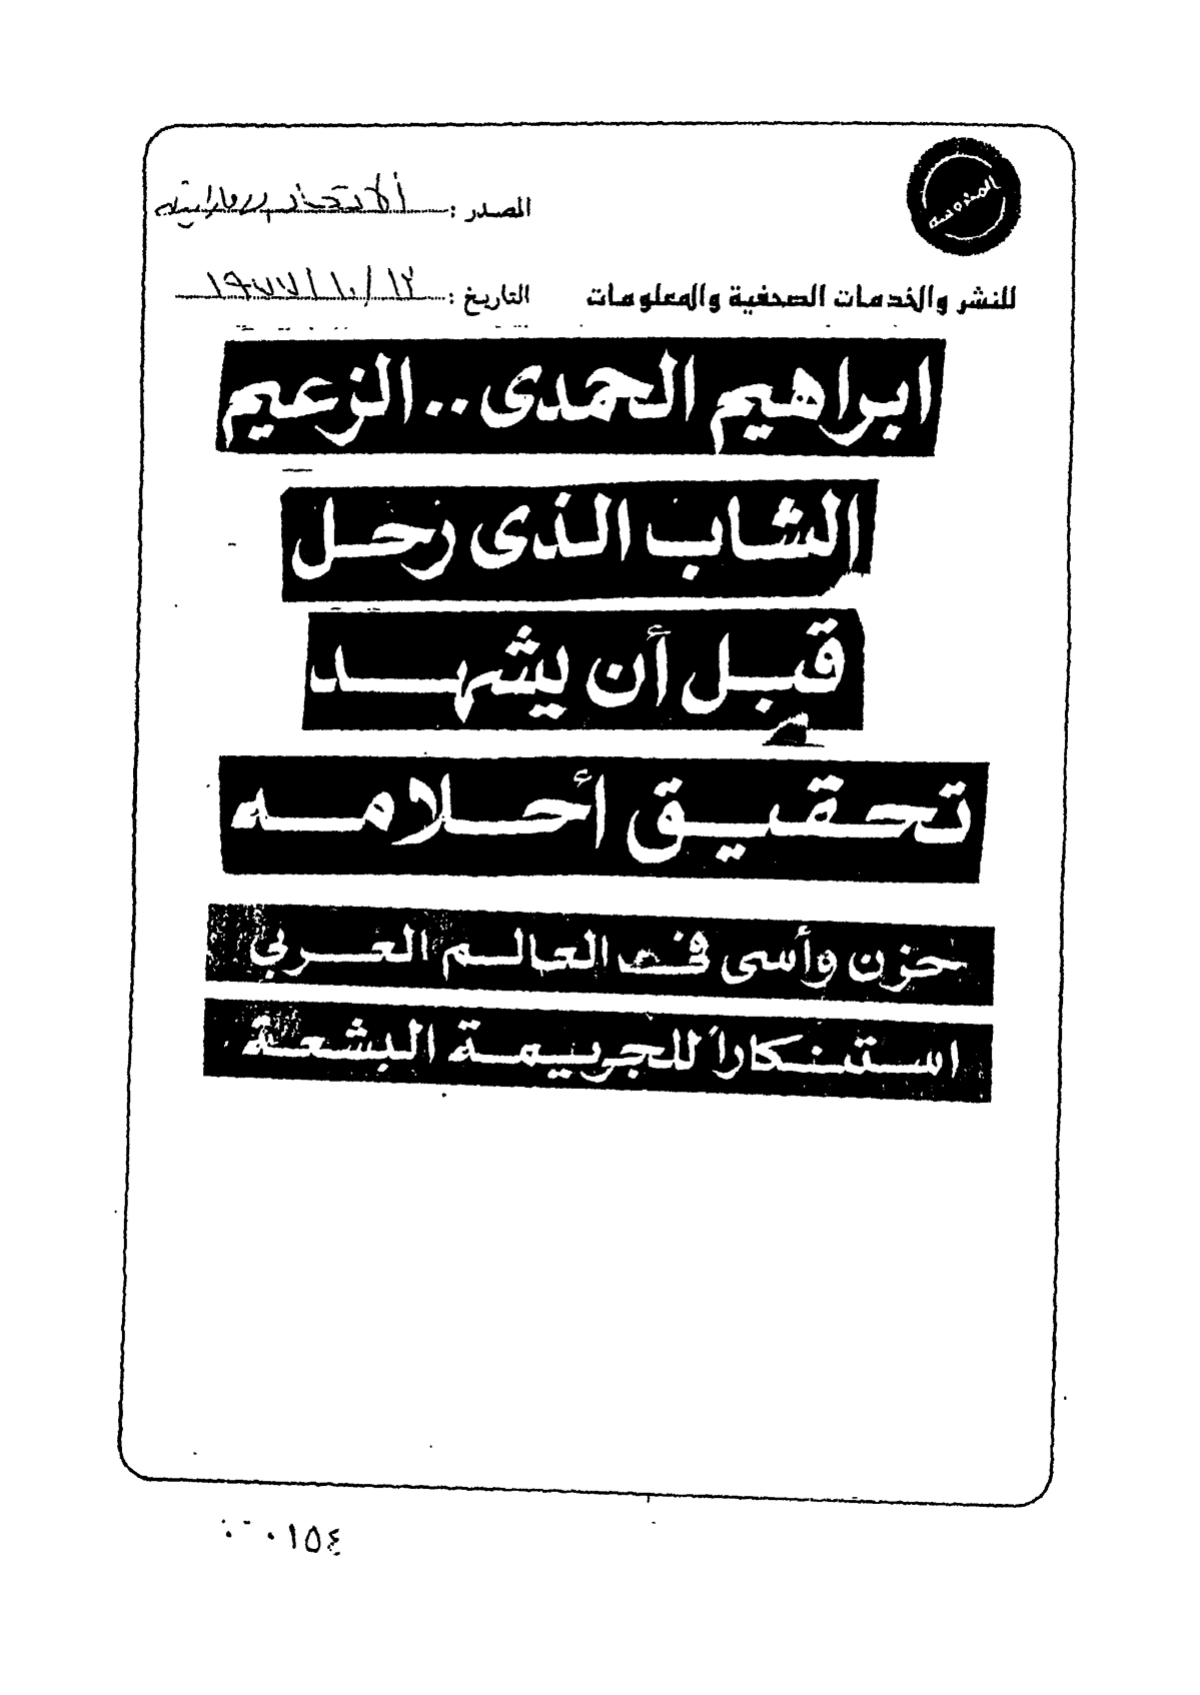 المحروسة
المصدر : الاتحاد الإماراتية
للنشر والخدمات الصحفية والمعلومات التاريخ : ١٩٧٧/١٠/١٢
ابراهيم الحمدى .. الزعيم
الشاب الذى رحل
قبل أن يشهد
تحقيق أحلامه
حزن وأسى في العالم العربي
استنكاراً للجريمة البشعة
٠١٥٤